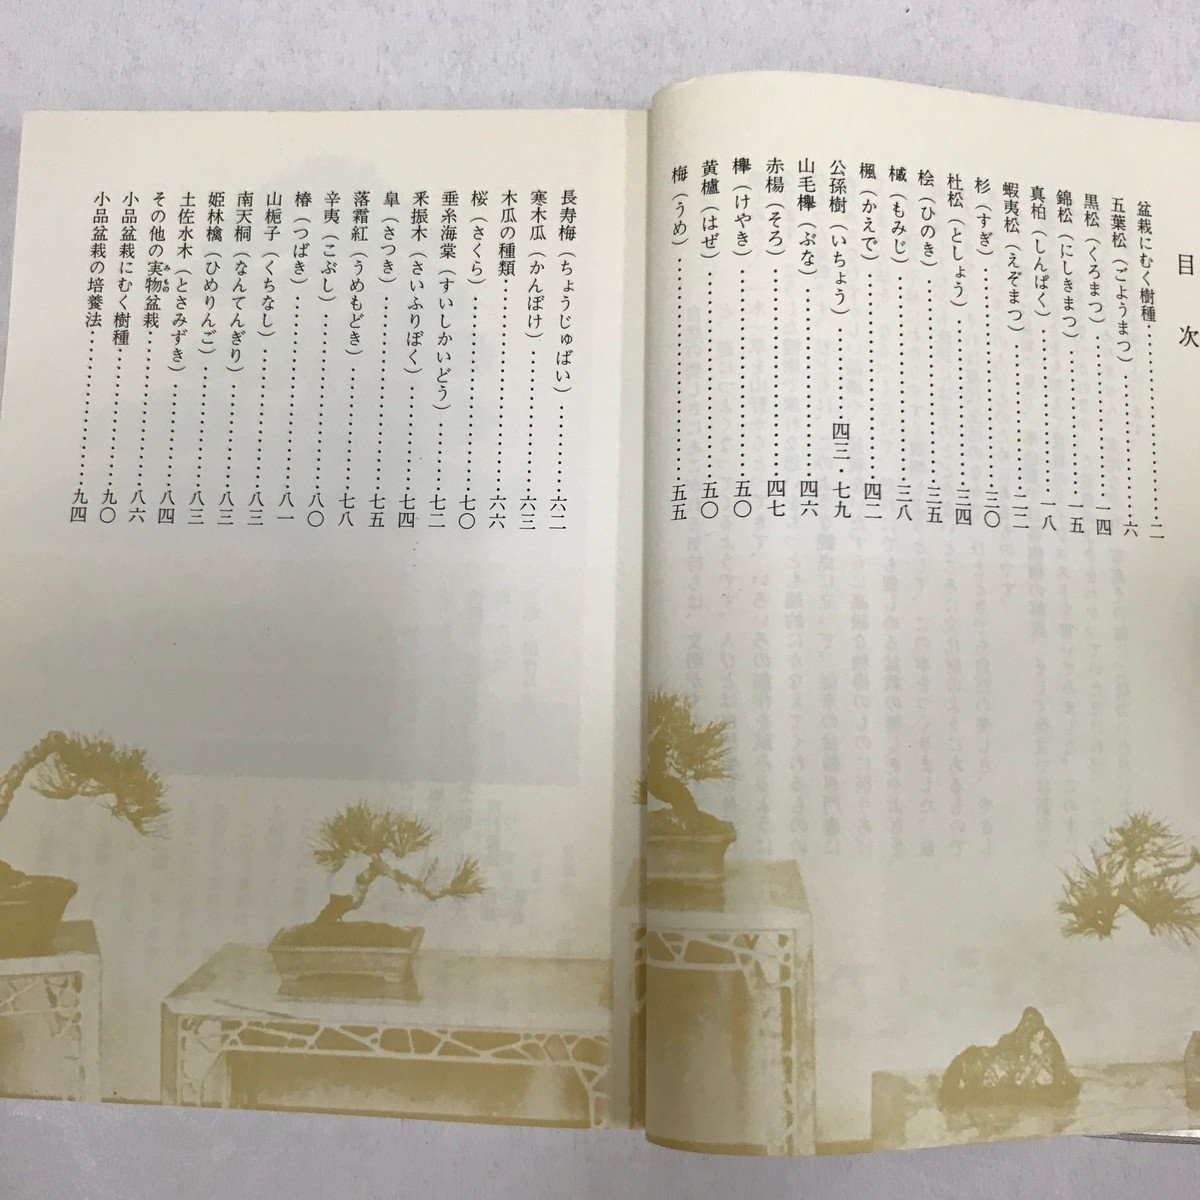 目次
盆栽にむく樹種……………二
五葉松（ごようまつ）……………六
黒松（くろまつ）……………一四
錦松（にしきまつ）……………一五
真柏（しんぱく）……………一八
蝦夷松（えぞまつ）……………二二
杉（すぎ）……………三〇
杜松（としょう）……………三四
桧（ひのき）……………三五
槭（もみじ）……………三八
楓（かえで）……………四二
公孫樹（いちょう）……………四三 七九
山毛欅（ぶな）……………四六
赤楊（そろ）……………四七
欅（けやき）……………五〇
黄櫨（はぜ）……………五〇
梅（うめ）……………五五
長寿梅（ちょうじゅばい）……………六二
寒木瓜（かんぼけ）……………六三
木瓜の種類……………六六
桜（さくら）……………七〇
垂糸海棠（すいしかいどう）……………七二
釆振木（さいふりぼく）……………七四
皐（さつき）……………七五
落霜紅（うめもどき）……………七八
辛夷（こぶし）……………八〇
椿（つばき）……………八一
山梔子（くちなし）……………八三
南天桐（なんてんぎり）……………八三
姫林檎（ひめりんご）……………八三
土佐水木（とさみずき）……………八四
その他の実物盆栽……………八六
小品盆栽にむく樹種……………九〇
小品盆栽の培養法……………九四